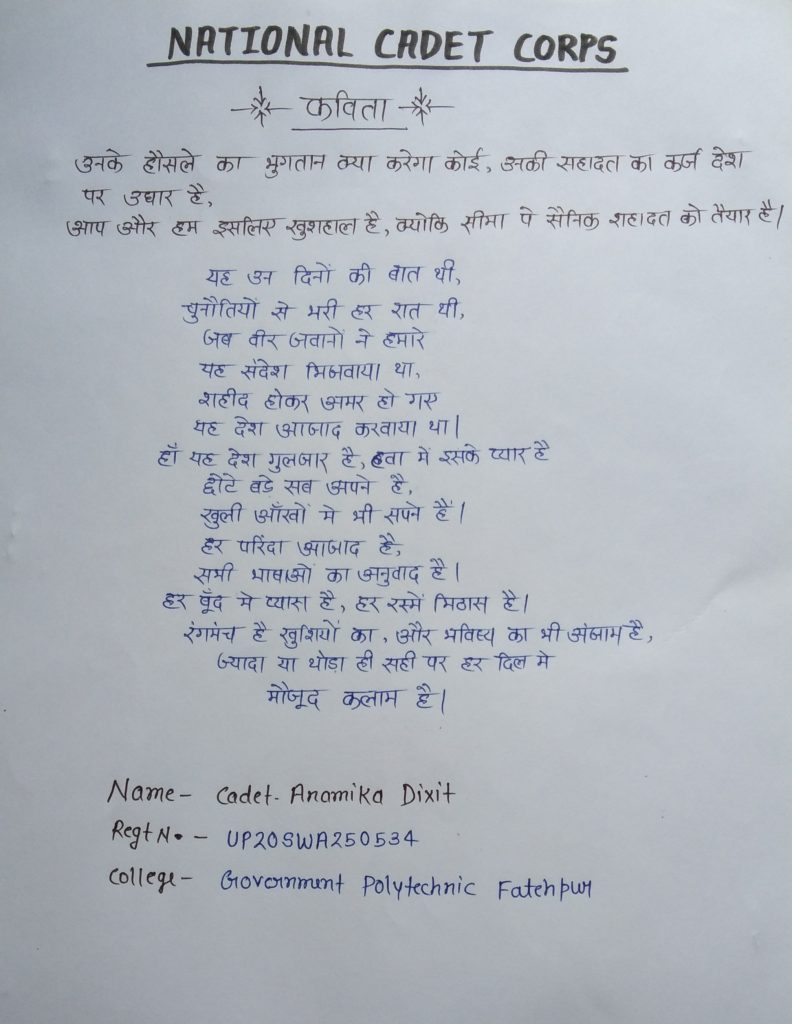 NATIONAL CADET CORPS
कविता
उनके हौसले का भुगतान क्या करेगा कोई, उनकी सहादत का कर्ज देश
पर उधार है,
आप और हम इसलिए खुशहाल है, क्योकि सीमा पे सैनिक शहादत को तैयार है।
यह उन दिनों की बात थी,
चुनौतियों से भरी हर रात थी,
जब वीर जवानों ने हमारे
यह संदेश भिजवाया था,
शहीद होकर अमर हो गए
यह देश आजाद करवाया था।
हाँ यह देश गुलजार है, हवा में इसके प्यार है
छोटे बड़े सब अपने है,
खुली आँखों मे भी सपने हैं।
हर परिंदा आजाद है,
सभी भाषाओं का अनुवाद है।
हर बूँद मे प्यास है, हर रस्में मिठास है।
रंगमंच है खुशियों का, और भविष्य का भी अंजाम है,
ज्यादा या थोड़ा ही सही पर हर दिल मे
मौजूद कलाम है।
Name- Cadet- Anamika Dixit
Regt No. - UP20SWA250534
College- Government Polytechnic Fatehpur